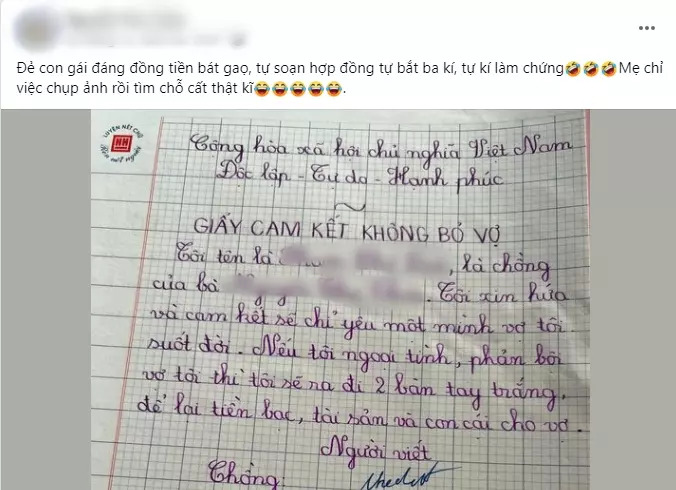 Đẻ con gái đáng đồng tiền bát gạo, tự soạn hợp đồng tự bắt ba kí, tự kí làm chứng🤣🤣🤣Mẹ chỉ
việc chụp ảnh rồi tìm chỗ cất thật kĩ😂😂😂😂😂.
LUYỆN NÉT CHỮ
Rèn nết người
Cộng hòa xã hội chủ nghĩa Việt Nam
Độc lập - Tự do - Hạnh phúc
GIẤY CAM KẾT KHÔNG BỎ VỢ
Tôi tên là , là chồng
của bà . Tôi xin hứa
và cam kết sẽ chỉ yêu một mình vợ tôi
suốt đời. Nếu tôi ngoại tình, phản bội
vợ tôi thì tôi sẽ ra đi 2 bàn tay trắng,
để lại tiền bạc, tài sản và con cái cho vợ.
Người viết
Chồng: